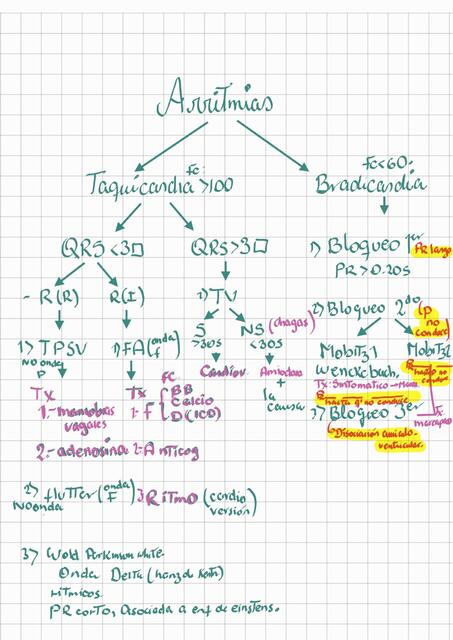 Arritmias
fc:
Taquicardia >100
fc<60.
Bradicardia
QRS <3□
QRS >3□
1) Bloqueo 1er PR largo
PR>0.20s
- R(R)
R(I)
1) TV
2) Bloqueo 2do (P no conduce)
1) TPSV
NO onda P
1) FA (onda f)
S >30s
NS <30s (chagas)
Mobitz 1
Wenckebach,
Mobitz 2
Cardiov.
Amiodara
+
la causa
Tx
1.- maniobras vagales
2.- adenosina
Tx
1- f
FC
BB
Calcio
D(ICD)
2- Anticog
3 Ritmo (cardio versión)
PR hasta q' no conduce
3) Bloqueo 3er
(Disociación auriculo-ventricular.
Tx:
marcapaso
2) flutter (onda F)
NO onda
3) Wold Parkinson white.
Onda Delta
ritmicos
PR corto, asociada a enf de einstens.